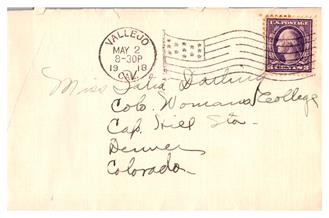 VALLEJO
MAY 2
8-30P
1918
CAL.
U.S. POSTAGE
3 CENTS 3
Miss Talia Darling
Colo. Womans College
Cap. Hill Sta.
Denver
Colorado.